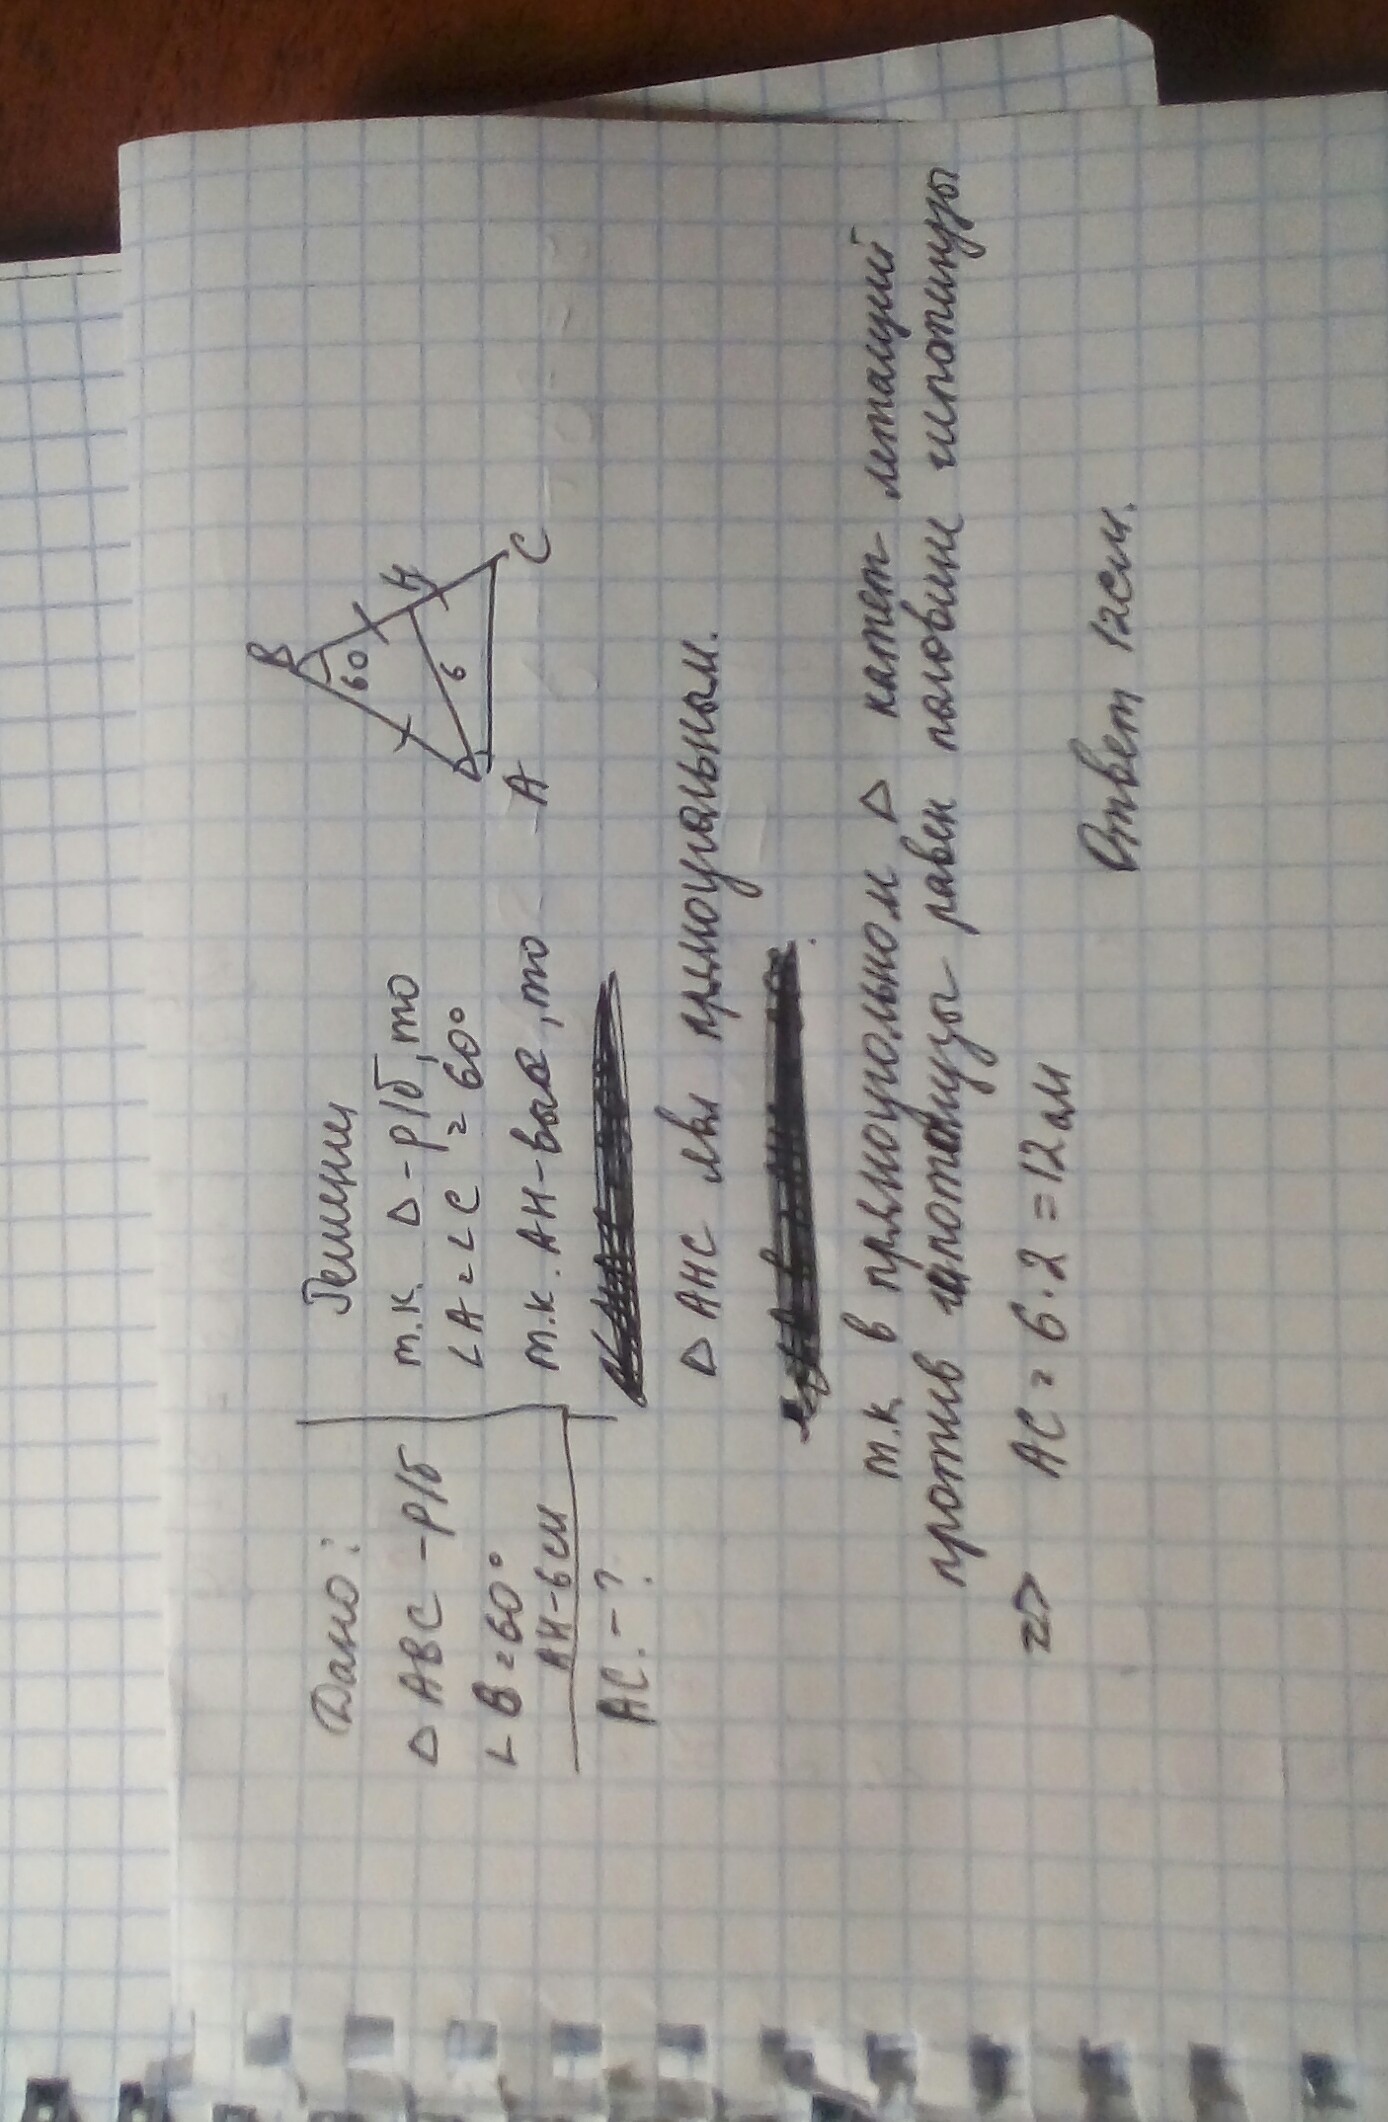 Дано:
Δ ABC - р/б
∠ B = 60°
AH - 6 см
AC. - ?
Решени
т.к. Δ - р/б, то
∠A = ∠C = 60°
т.к. AH - выс, то
B
60
H
6
A
C
Δ AHC явл прямоугальным.
т.к в прямоугольном Δ катет лежащий
против гипотинузы равен половине гипотинузы
=> AC = 6 · 2 = 12 см
Ответ 12см.